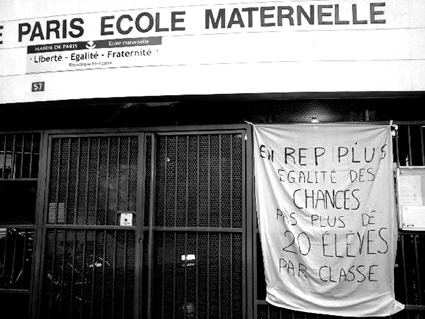 E PARIS ECOLE MATERNELLE
MAIRIE DE PARIS Ecole maternelle
· Liberté · Egalité · Fraternité ·
République Française
57
EN REP PLUS
ÉGALITÉ DES
CHANCES
PAS PLUS DE
20 ÉLÈVES
PAR CLASSE